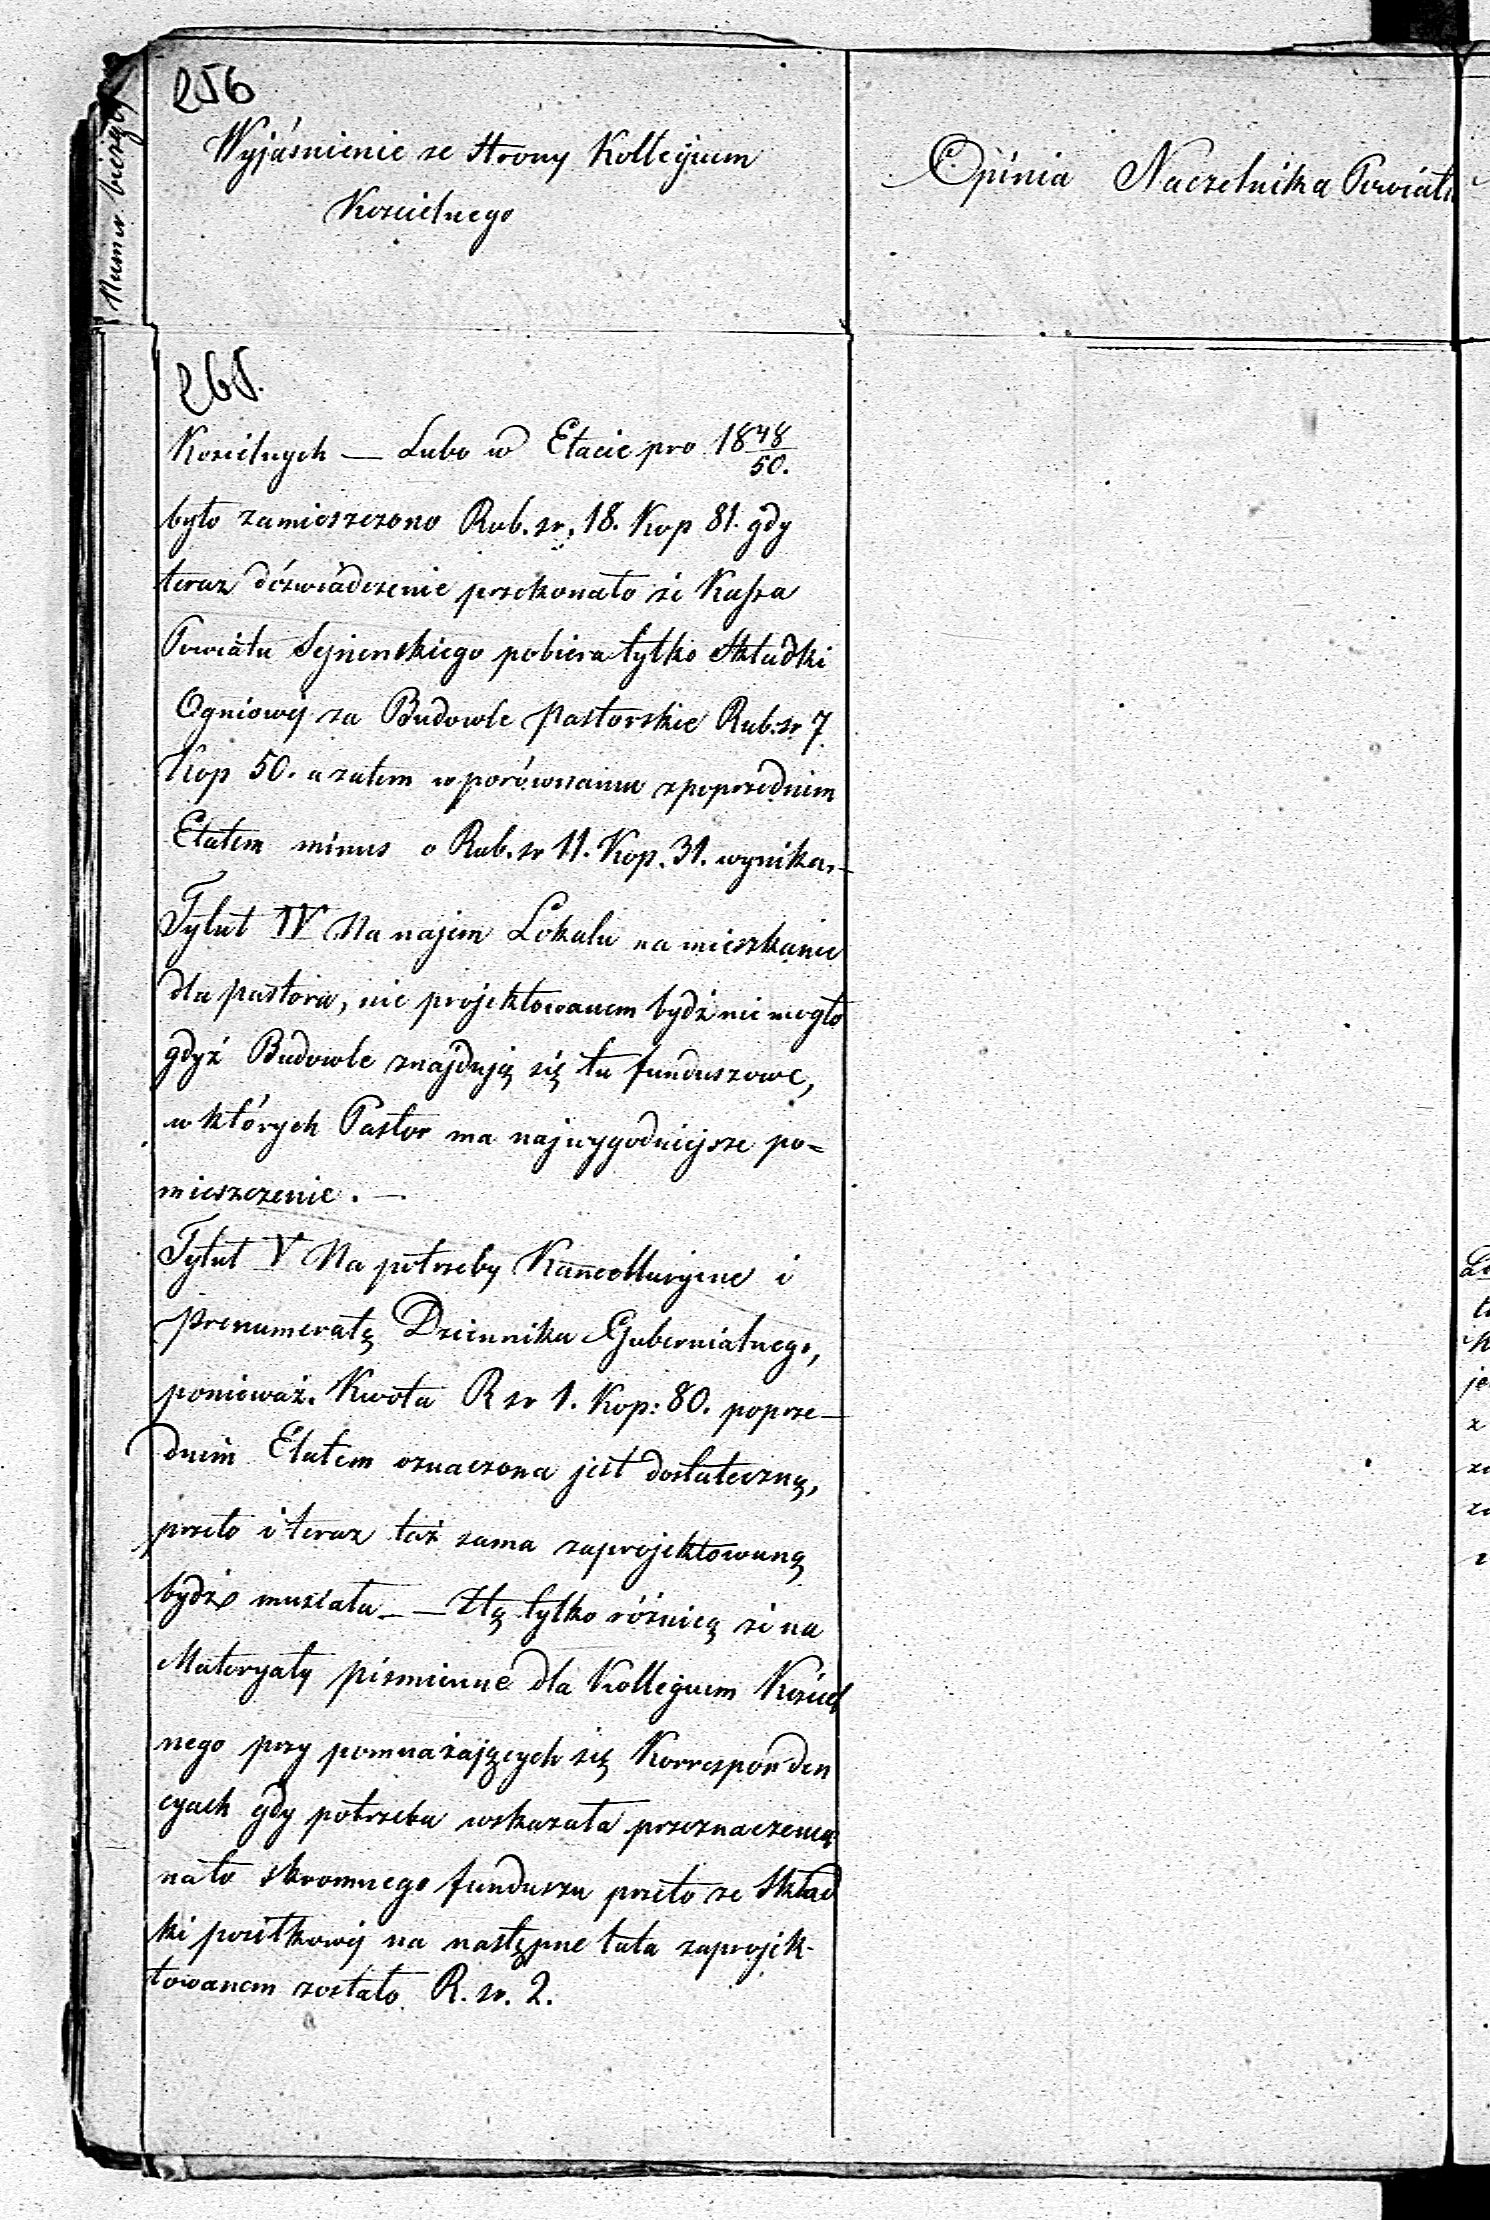 256
Numer bieżący
Wyjaśnienie ze strony Kollegium
Koscielnego
Opinia Naczelnika Powiatu
265.
Koscielnych — Lubo w Etacie pro 1848/50.
było zamieszczono Rub. sr. 18. Kop 81. gdy
teraz doswiadczenie przekonało że Kassa
Powiatu Sejnenskiego pobiera tylko składki
Ogniowej za Budowle pastorskie Rub. sr 7
Kop 50. a zatem w porównaniu z poprzednim
Etatem minus o Rub. sr 11. Kop. 31. wynika. —
Tytuł IV Na najem Lokalu na mieszkanie
dla pastora, nie projektowanem bydź nie mogło
gdyż Budowle znajdują się tu funduszowe,
w których Pastor ma najwygodniejsze po=
mieszczenie. —
Tytuł V Na potrzeby Kancellaryjne i
prenumeratę Dziennika Gubernialnego,
ponieważ Kwota R sr 1. Kop: 80. poprze—
dnim Etatem oznaczona jest dostateczną,
przeto i teraz taż sama zaprojektowaną
bydź musiała — — Z tą tylko różnicą że na
Materyały piśmienne dla Kollegium Kościel
nego przy pomnażających się Korresponden
cyach gdy potrzeba wskazała przeznaczenia
na to skromnego funduszu przeto ze Skład
ki na następne lata zaprojek-
towanem zostało R. sr. 2.